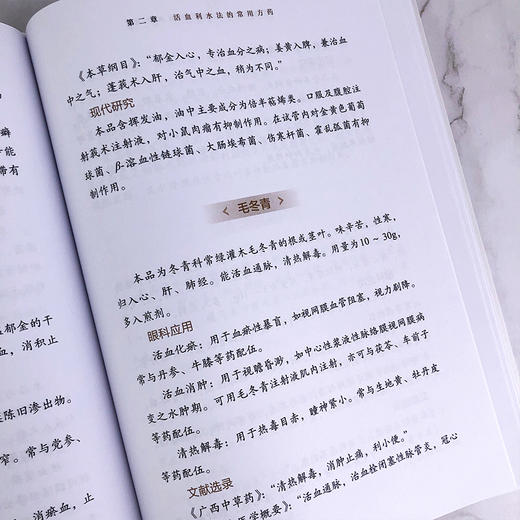 癣
产能
带有
血郁金的干
血，消积止
陈旧渗出物。
窄。常与党参、
，消瘀血，止
第二章 活血利水法的常用方药
《本草纲目》：“郁金入心，专治血分之病；姜黄入脾，兼治血
中之气；蓬莪术入肝，治气中之血，稍为不同。”
现代研究
本品含挥发油，油中主要成分为倍半萜烯类。口服及腹腔注
射莪术注射液，对小鼠肉瘤有抑制作用。在试管内对金黄色葡萄
球菌、β-溶血性链球菌、大肠埃希菌、伤寒杆菌、霍乱弧菌有抑
制作用。
毛冬青
本品为冬青科常绿灌木毛冬青的根或茎叶。味辛苦，性寒，
归入心、肝、肺经。能活血通脉，清热解毒。用量为10～30g，
多入煎剂。
眼科应用
活血化瘀：用于血瘀性暴盲，如视网膜血管阻塞，视力剧降。
常与丹参、牛膝等药配伍。
活血消肿：用于视瞻昏渺，如中心性浆液性脉络膜视网膜病
变之水肿期。可用毛冬青注射液肌内注射，亦可与茯苓、车前子
等药配伍。
清热解毒：用于热毒目赤，瞳神紧小。常与生地黄、牡丹皮
等药配伍。
文献选录
《广西中草药》：“清热解毒，消肿止痛，利小便。”
医学概要》：“活血通脉，治血栓闭塞性脉管炎，冠心